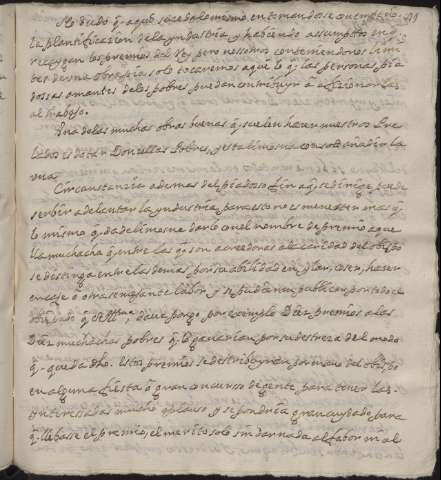 No dudo q.e aqui sucede lo mismo en tomandose con empeño
la plantificacion de la yndustria, y habiendo assumpto en q.e
recaygan los premios del Rey pero nosotros conteniendonos
dentro de una obra pia solo tocaremos aqui lo q.e las personas pia
dossas amantes de los pobres puedan contribuyr a aficionarlas
al trabajo.
Una de las muchas obras buenas q.e suelen hacer nuestros Pre
lados es dotar Donzellas Pobres, y esta limosna con solo añadirla
una
Circunstancia ademas del piadoso fin a q.e se dirige puede
serbir a delantar la yndustria, para esto no es menester mas q.e
lo mismo q.e da de limosna darlo con el nombre de premio aque
lla muchacha q.e entre las q.e son acreedoras a la caridad del obispo
se distinga entre las demas por su abilidad en ylar, coser, hacer
encaje ú otra semejante labor, y se pudiera publicar por todo el
obispado q.e S. Ill.ma daria por exemplo Diez premios a las
Diez muchachas pobres q.e lo ganarian por su destreza del modo
q.e queda dho. Estos premios se destribuyran por mano del obispo
en alguna fiesta ó gran concurso de gente para tener las
interesadas mucho aplauso y se pondria gran cuydado para
q.e llebase el premio, el merito solo sin dar nada al fabor ni al